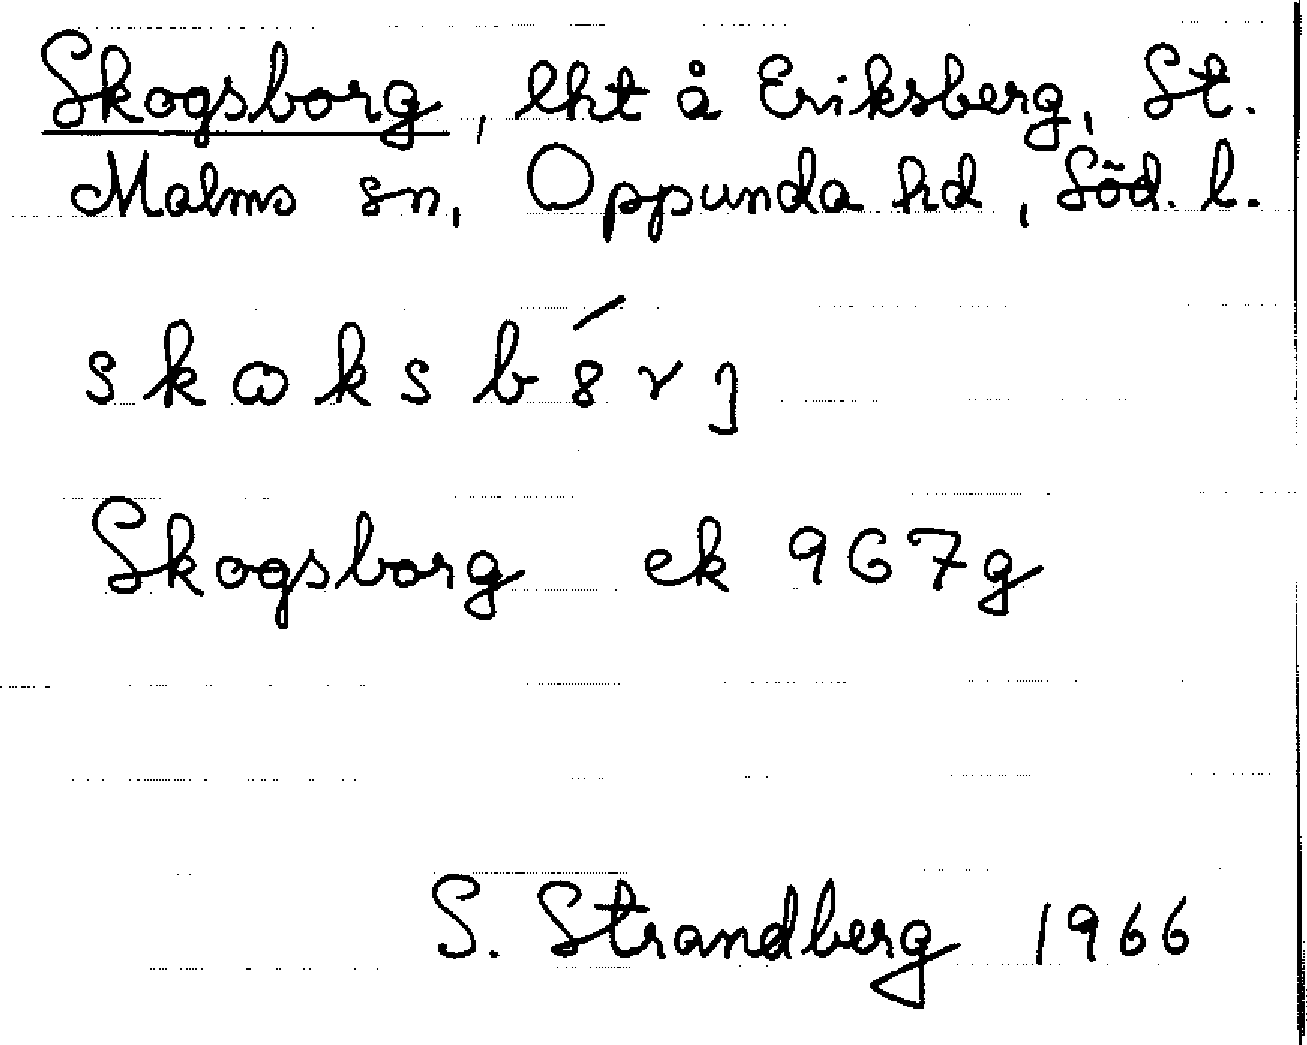 Skogsborg, lht å Eriksberg, St.
Malms sn, Oppunda hd, Söd. l.
skɷksb8́rȷ
Skogsborg ek 967g
S. Strandberg 1966